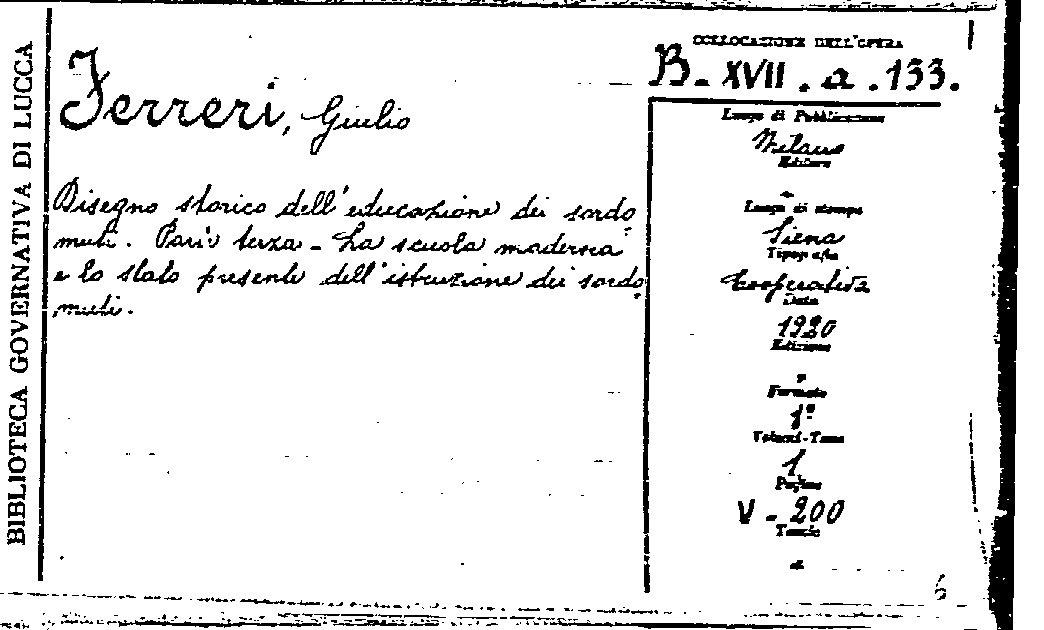 BIBLIOTECA GOVERNATIVA DI LUCCA
Ferreri, Giulio
Disegno storico dell'educazione dei sordo
muti. Parte terza - La scuola moderna
e lo stato presente dell'istruzione dei sordo
muti.
COLLOCAZIONE DELL'OPERA
B - XVII . a . 133.
Luogo di Pubblicazione
Milano
Editore
-
Luogo di stampa
Siena
Tipografia
Cooperativa
Data
1920
Edizione
Formato
Volumi-Tomo
1
Pagine
V - 200
Tavole
6